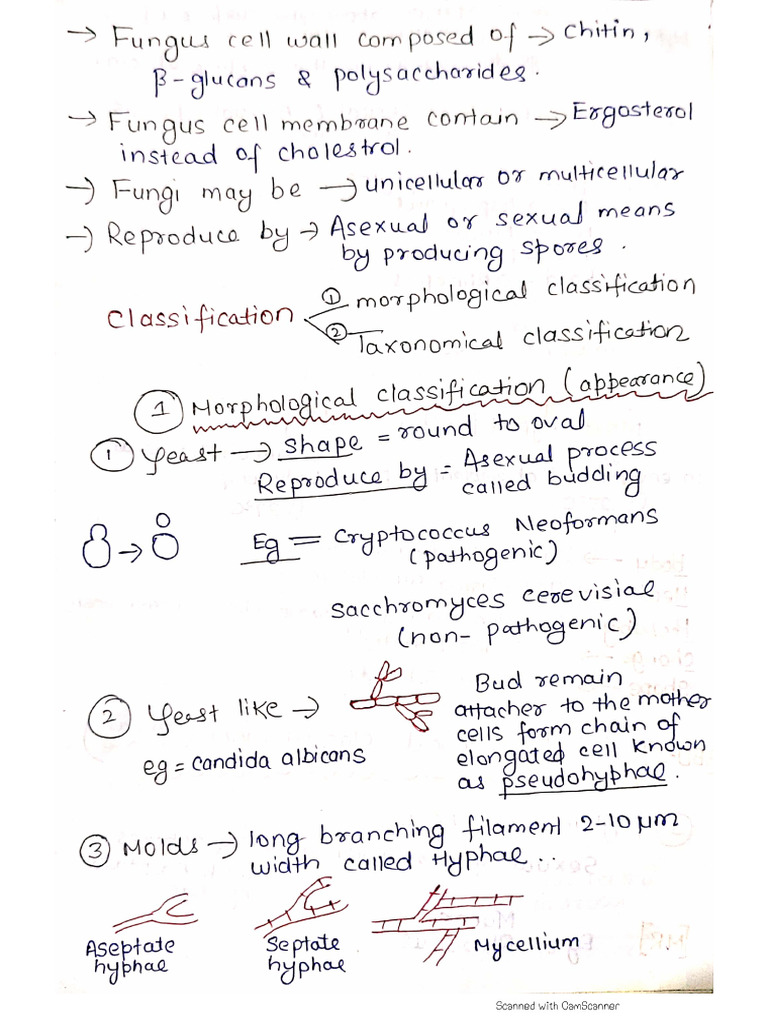 → Fungus cell wall composed of → Chitin,
β-glucans & polysaccharides.
→ Fungus cell membrane contain → Ergosterol
instead of cholestrol.
→ Fungi may be → unicellular or multicellular
→ Reproduce by → Asexual or sexual means
by producing spores.
① morphological classification
Classification
② Taxonomical classification
① Morphological classification (appearance)
① Yeast → Shape = round to oval
Reproduce by = Asexual process
called budding
Eg = Cryptococcus Neoformans
(pathogenic)
Sacchromyces cerevisial
(non-pathogenic)
② Yeast like →
eg = candida albicans
Bud remain
attacher to the mother
cells form chain of
elongated cell known
as pseudohyphae.
③ Molds → long branching filament 2-10 μm
width called Hyphae..
Aseptate
hyphae
Septate
hyphae
Mycellium
Scanned with CamScanner